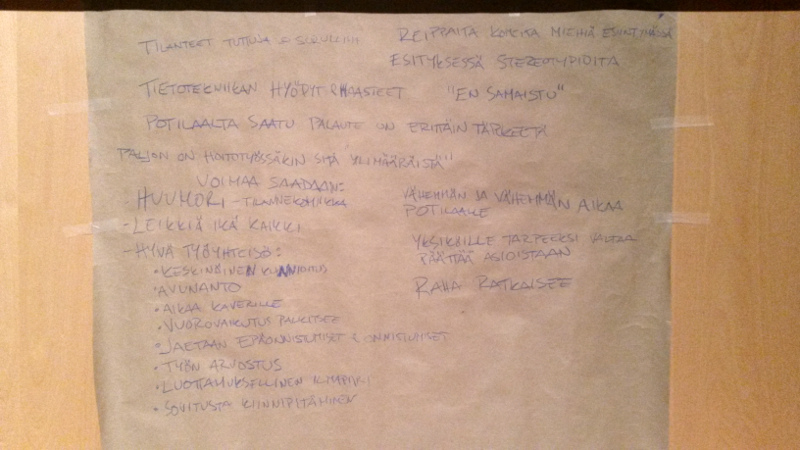 TILANTEET TUTTUJA &
REIPPAITA KOMEITA MIEHIÄ ESIINTYMÄSSÄ
ESITYKSESSÄ STEREOTYPIOITA
TIETOTEKNIIKAN HYÖDYT & HAASTEET
"EN SAMAISTU"
POTILAALTA SAATU PALAUTE ON ERITÄIN TÄRKEETÄ
PALJON ON HOITOTYÖSSÄKIN SITÄ YLIMÄÄRÄISTÄ"
VOIMAA SAADAAN:
- HUUMORI - TILANNEKOMIIKKA
- LEIKKIÄ IKÄ KAIKKI
- HYVÄ TYÖYHTEISÖ:
• KESKINÄINEN KUNNIOITUS
• AVUNANTO
• AIKAA KAVERILLE
• VUOROVAIKUTUS PALKITSEE
• JAETAAN EPÄONNISTUMISET & ONNISTUMISET
• TYÖN ARVOSTUS
• LUOTTAMUKSELLINEN ILMAPIIRI
• SOVITUSTA KIINNIPITÄMINEN
VÄHEMMÄN JA VÄHEMMÄN AIKAA
POTILAALLE
YKSIKÖILLE TARPEEKSI VALTAA
PÄÄTTÄÄ ASIOISTAAN
RAHA RATKAISEE